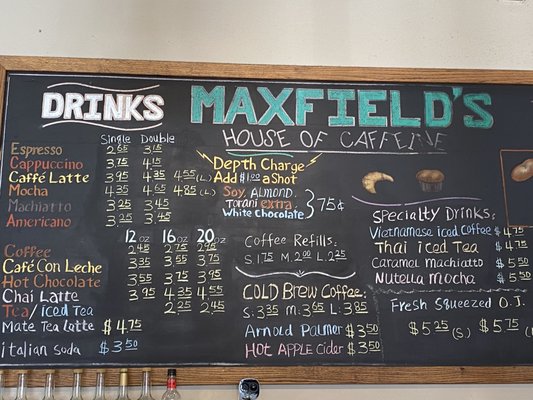 DRINKS
Single Double
Espresso 2.65 3.15
Cappuccino 3.75 4.15
Caffé Latte 3.95 4.35 4.55 (L)
Mocha 4.35 4.65 4.85 (L)
Machiatto 3.25 3.45
Americano 3.25 3.45
12oz 16oz 20oz
Coffee 2.45 2.75 2.95
Café Con Leche 3.35 3.55 3.75
Hot Chocolate 3.55 3.75 3.95
Chai Latte 3.95 4.35 4.55
Tea/Iced Tea 2.25 2.45
Mate Tea latte $4.75
Italian soda $3.50
MAXFIELD'S
HOUSE OF CAFFEINE
Depth Charge
Add $1.00 a Shot
Soy, Almond,
Torani extra,
White Chocolate 75¢
Coffee Refills:
S.1.75 M.2.00 L.2.25
COLD Brew Coffee:
S.3.35 M.3.65 L.3.85
Arnold Palmer $3.50
HOT APPLE Cider $3.50
Specialty Drinks:
Vietnamese iced Coffee $4.75
Thai iced Tea $4.75
Caramel machiatto $5.50
Nutella mocha $5.50
Fresh Squeezed O.J.
$5.25 (S) $5.75